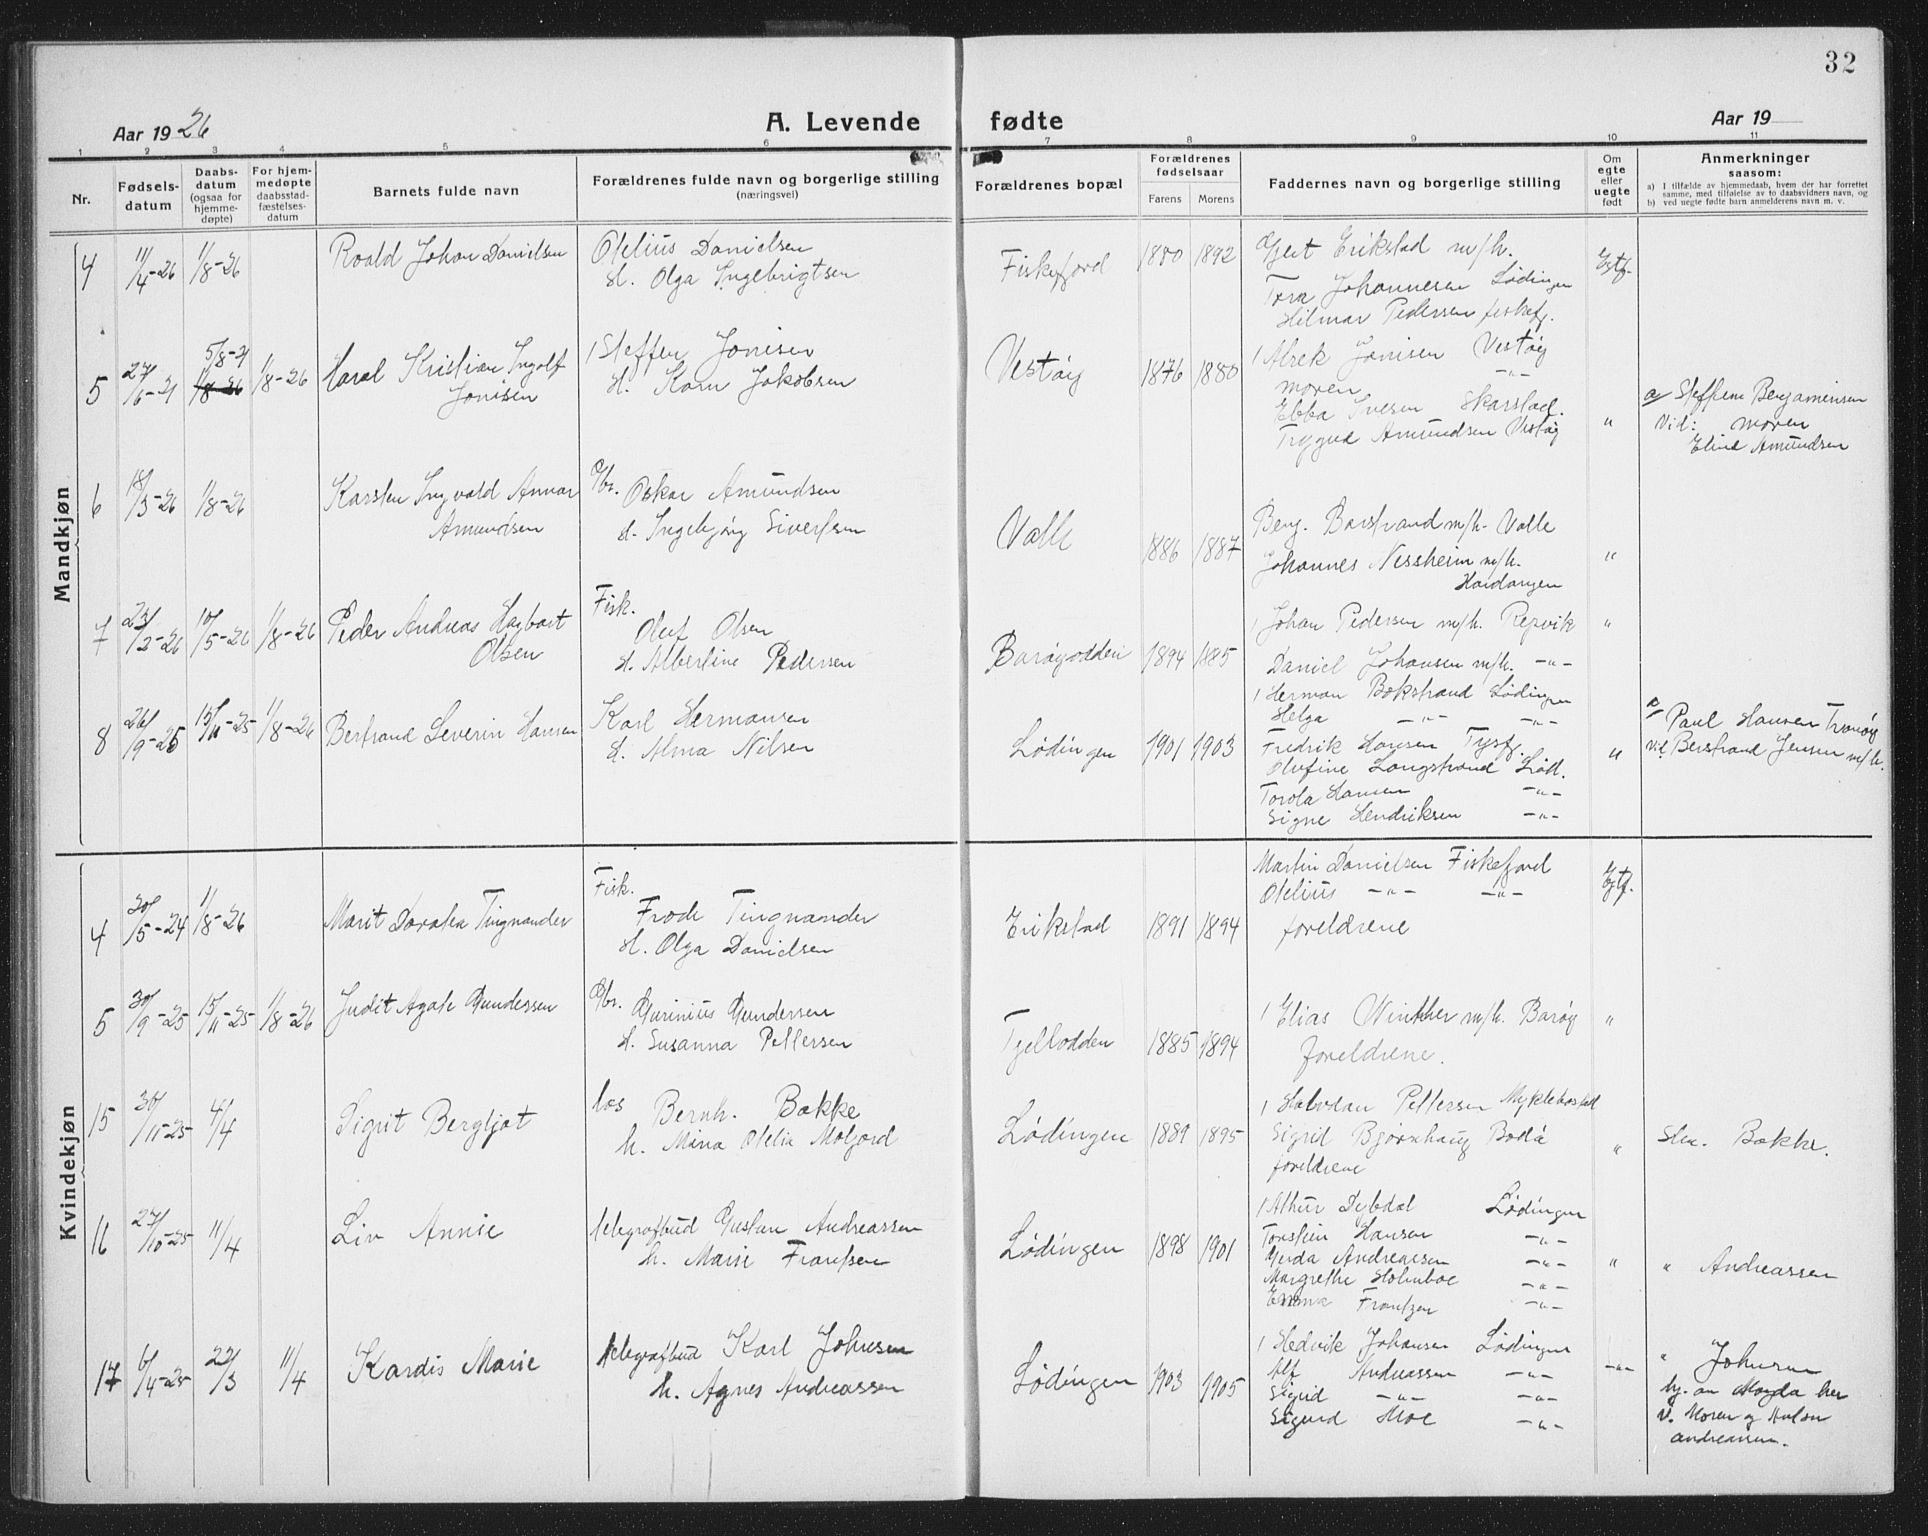 32
Aar 1926
A. Levende fødte
Aar 19
1 2 3 4 5 6 7 8 9 10 11
Nr.
Fødsels-
datum
Daabs-
datum
(ogsaa for
hjemme-
døpte)
For hjem-
medøpte
daabsstad-
fæstelses-
datum
Barnets fulde navn
Forældrenes fulde navn og borgerlige stilling
(næringsvei)
Forældrenes bopæl
Forældrenes
fødselsaar
Farens Morens
Faddernes navn og borgerlige stilling
Om
egte
eller
uegte
født
Anmerkninger
saasom:
a) I tilfælde av hjemmedaab, hvem der har forrettet
samme, med tilføielse av to daabsvidners navn, og
b) ved uegte fødte barn anmelderens navn m. v.
Mandkjøn
4 11/4-26 1/8-26 Roald Johan Danielsen
Otelius Danielsen
H. Olga Ingebrigtsen
Fiskefjord 1880 1892
Gjert Erikstad m/h.
Tora Johannesen Lødingen
Hilmar Pedersen fiskefj.
Egtf.
5 27/6-21 5/8-21 1/8-26 1/8-26
Kristian Ingolf
Jonisen
Steffen Jonisen
H. Karn Jakobsen
Vestøy 1876 1880
1 Alrek Jonisen Vestøy
moren -"-
Ebba Ivesen Skarstad.
Trygve Amundsen Vestøy
"
a/ Steffen Benjaminsen
Vid: moren
Eline Amundsen
6 18/3-26 1/8-26 Karsten Ingvald Annar
Amundsen
Gbr. Oskar Amundsen
H. Ingebjørg Sivertsen
Valle 1886 1887
Berg. Barstrand m/h. Valle
Johannes Nessheim m/h.
Hardangen
"
7 23/2-26 10/5-26 1/8-26 Peder Andreas Hagbart
Olsen
Fisk.
Oluf Olsen
H. Albertine Pedersen
Barøyodden 1894 1885
1 Johan Pedersen m/h. Repvik
Daniel Johansen m/h. -"-
"
8 26/9-25 15/11-25 1/8-26 Bertrand Severin Hansen
Karl Hermansen
H. Alma Nilsen
Lødingen 1901 1903
1 Herman Bokstrand Lødingen
Helga -"- -"-
Fredrik Hansen Tysfj.
Olufine Langstrand Lød.
Torola Hansen -"-
Signe Hendriksen -"-
"
a/ Paul Hansen Tranøy
vid. Bertrand Jensen m/h.
Kvindekjøn
4 20/5-24 1/8-26 Marit Doratea Tingnander
Fisk.
Frode Tingnander
H. Olga Danielsen
Erikstad 1891 1894
Martin Danielsen Fiskefjord
Otelius -"- -"-
foreldrene
Egtf.
5 30/9-25 15/11-25 1/8-26 Judit Agate Gundersen
Gbr. Gurinius Gundersen
H. Susanna Pettersen
Tjeltodden 1885 1894
1 Elias Winther m/h. Barøy
foreldrene.
"
15 30/11-25 4/4 Sigrit Bergljot
los Bernh. Bakke
h. Mina Otelia Moljord
Lødingen 1889 1895
1 Halvdan Pettersen Myklebostad
Sigrid Bjørnhaug Bodø
foreldrene
"
Sln. Bakke.
16 27/10-25 11/4 Liv Annie
telegrafbud Gustav Andreassen
h. Marie Frantsen
Lødingen 1898 1901
1 Athur Dybdal Lødingen
Torstein Hansen -"-
Gerda Andreassen -"-
Margrethe Holmboe -"-
Emma Frantzen -"-
"
" Andreassen
17 6/4-25 22/3 11/4 Kardis Marie
telegrafbud Karl Johnsen
h. Agnes Andreassen
Lødingen 1903 1905
1 Hedvik Johansen Lødingen
Alf Andreassen -"-
Sigrid -"- -"-
Sigurd Moe -"-
-"-
" Johnsen
hj. av Magda her
v. Moren og
andreassen.